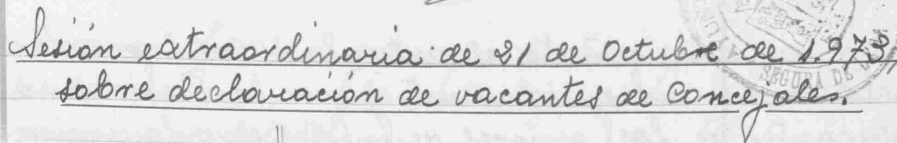 Sesión extraordinaria de 21 de Octubre de 1.973,
sobre declaración de vacantes de Concejales.
SEGURA DE